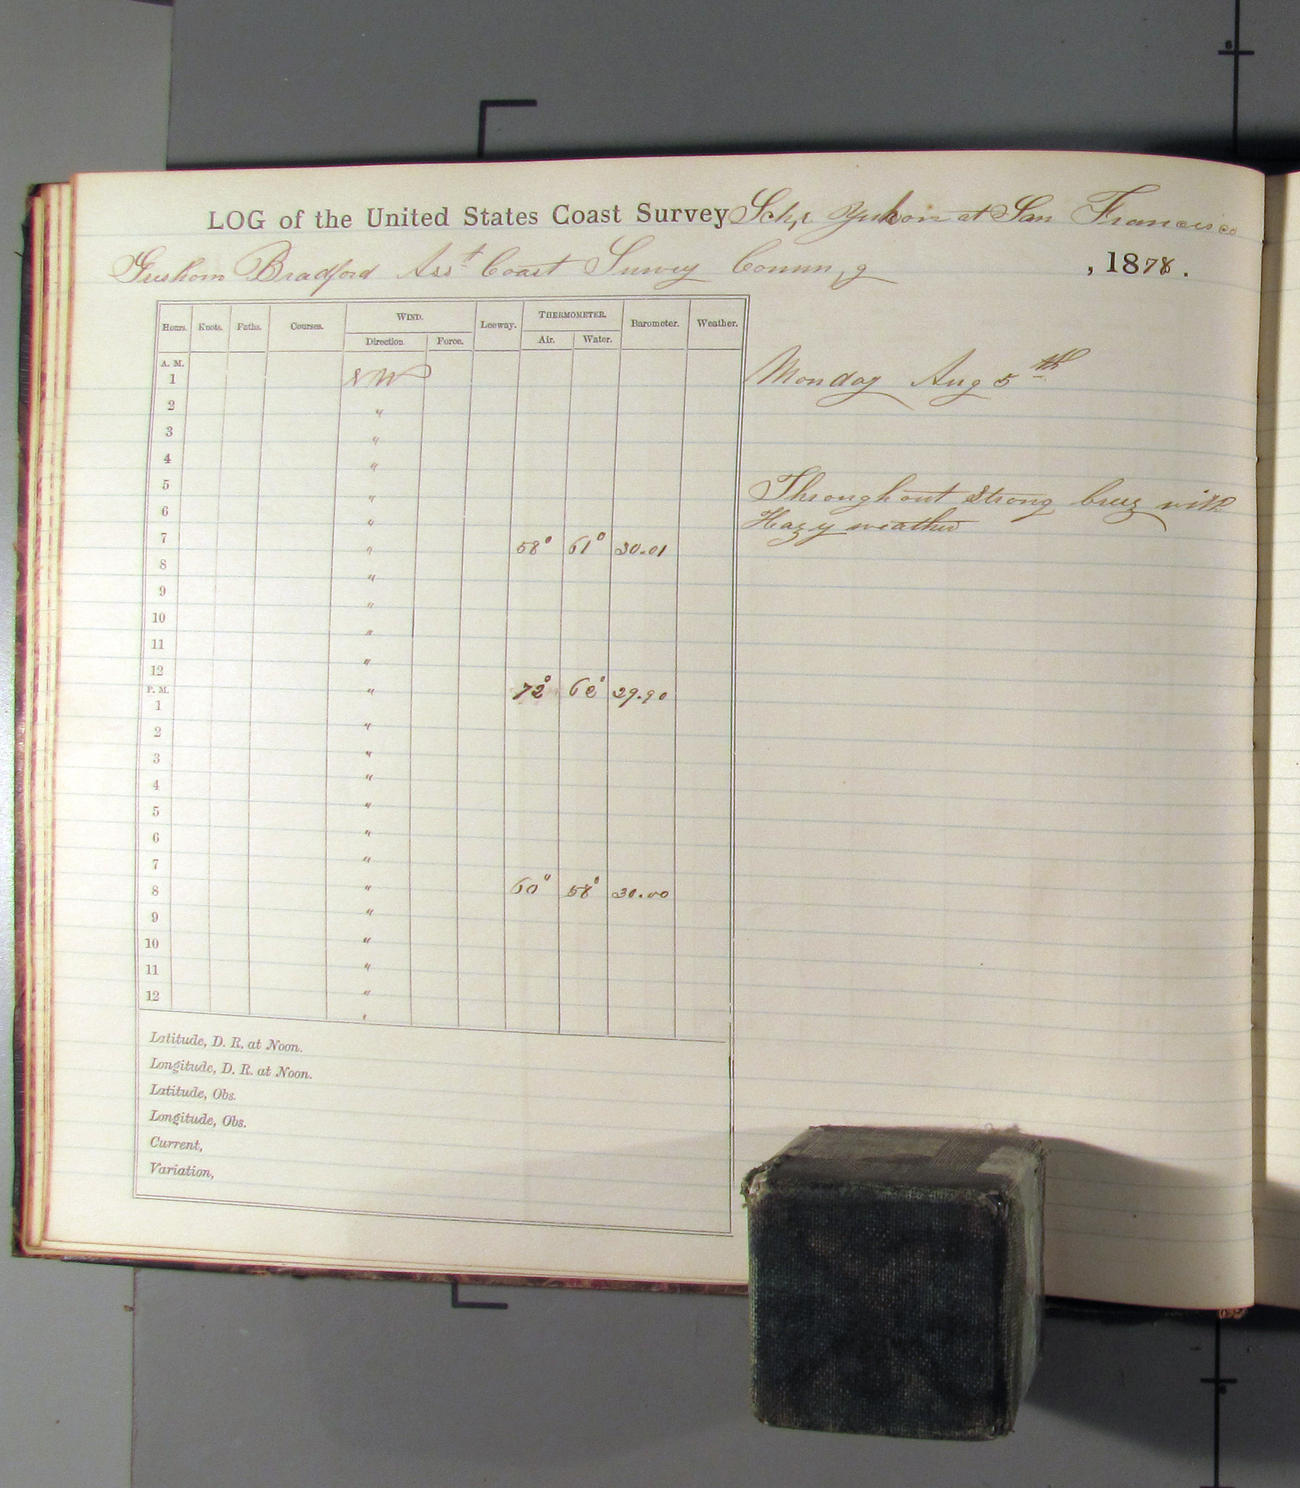 LOG of the United States Coast Survey Schr Yukon at San Francisco
Gershom Bradford Asst Coast Survey Comm,g , 1878.
Hours. Knots. Faths. Courses. WIND. Leeway. THERMOMETER. Barometer. Weather.
Direction. Force. Air. Water.
A. M.
1 NW Monday Aug 5th
2 "
3 "
4 "
5 " Throughout strong breez with
6 " Hazy weather
7 " 58° 61° 30.01
8 "
9 "
10 "
11 "
12 "
P. M. " 72° 29.90
1
2 "
3 "
4 "
5 "
6 "
7 "
8 " 60° 58° 30.00
9 "
10 "
11 "
12 "
Latitude, D. R. at Noon.
Longitude, D. R. at Noon.
Latitude, Obs.
Longitude, Obs.
Current,
Variation,